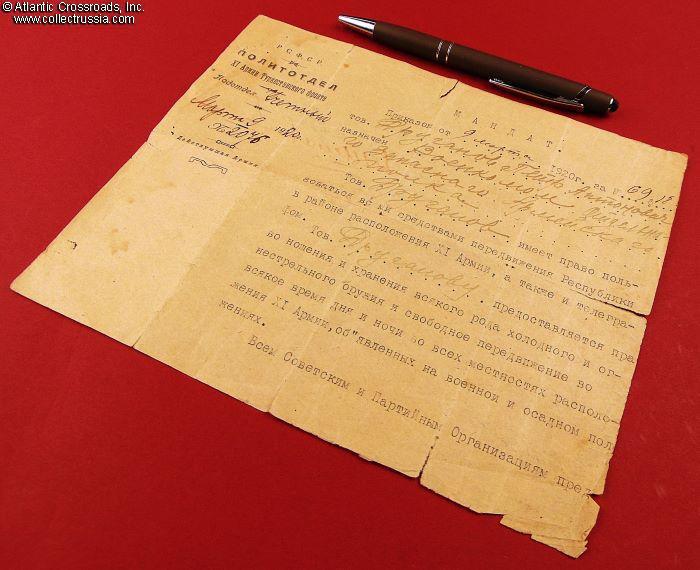 © Atlantic Crossroads, Inc.
www.collectrussia.com
Р С Ф С Р
ПОЛИТОТДЕЛ
XI Армии Туркестанского фронта
Подотдел
Марта 9 1920.
№ 2046
Действующая Армия.
М А Н Д А Т.
Приказом от 9 марта 1920г. за №. 69
тов.
назначен Военкомом
го Запасного
полка
Тов. имеет право поль-
зоваться всеми средствами передвижения Республики
в районе расположения XI Армий, а также и телегра-
фом.
Тов. предоставляется пра
во ношения и хранения всякого рода холодного и ог-
нестрельного оружия и свободное передвижение во
всякое время дня и ночи во всех местностях располо-
жения XI Армии, об"явленных на военной и осадном пол
жениях.
Всем Советским и Партийным Организациям пред